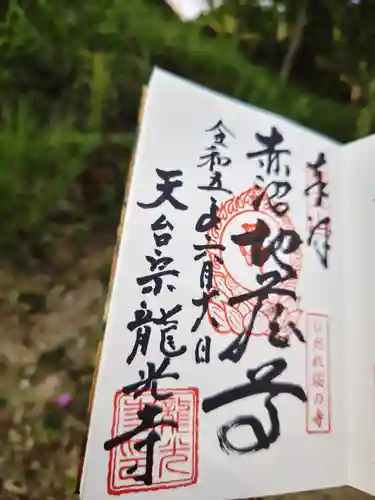 奉拝
赤沼地蔵尊
しだれ桜の寺
令和五年六月十八日
天台宗龍光寺